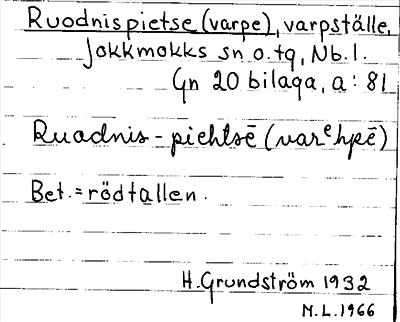 Ruodnispietse (varpe), varpställe,
Jokkmokks sn o. tg, Nb. l.
Gn 20 bilaga, a: 81
Ruadnis - piehtsē (varᵉhpē)
Bet. = rödtallen.
H. Grundström 1932
M.L. 1966